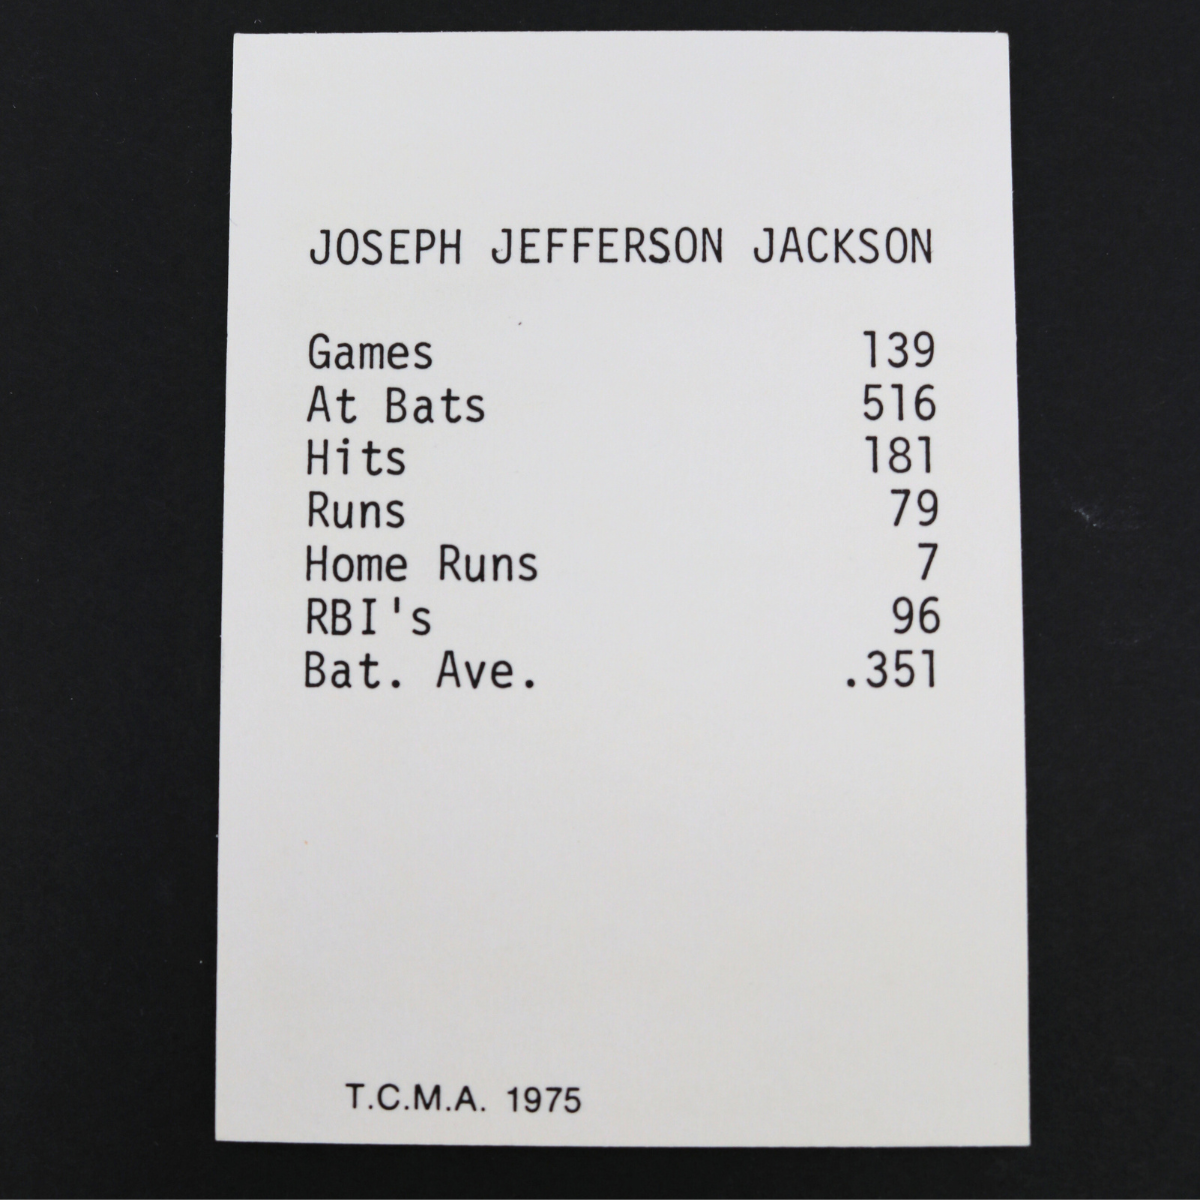 JOSEPH JEFFERSON JACKSON
Games 139
At Bats 516
Hits 181
Runs 79
Home Runs 7
RBI's 96
Bat. Ave. .351
T.C.M.A. 1975